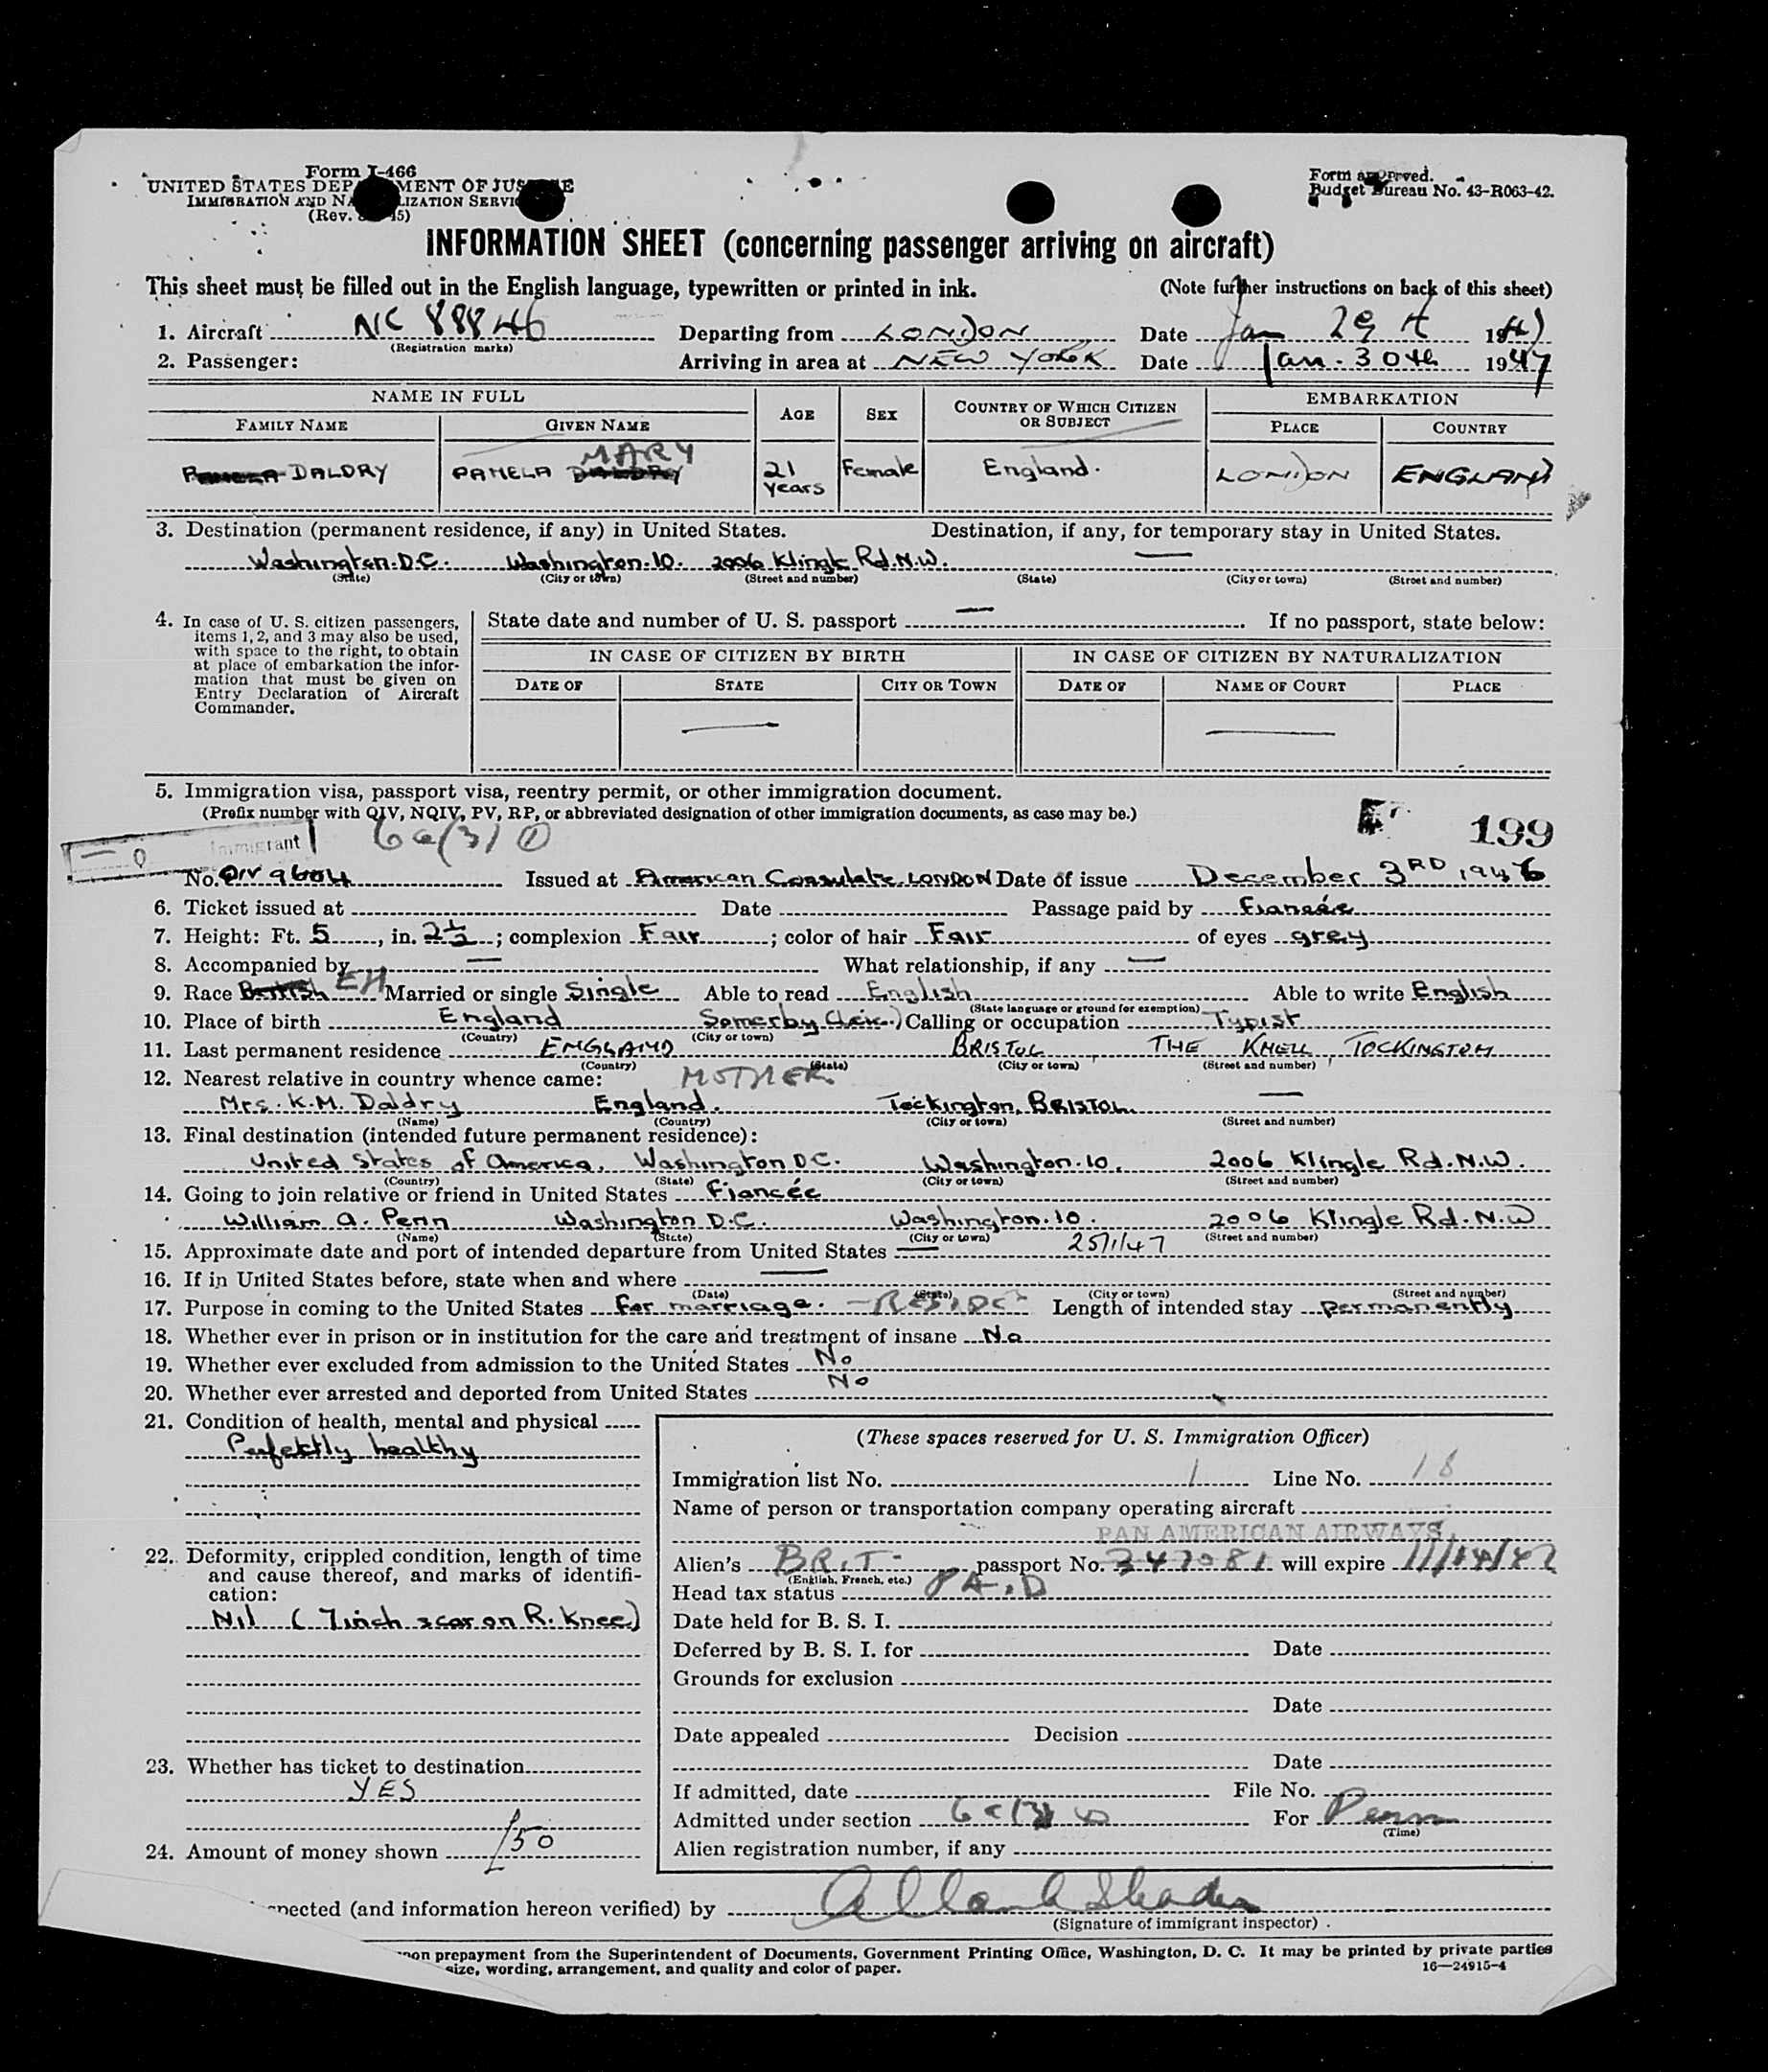 Form I-466
UNITED STATES DEPARTMENT OF JUSTICE
IMMIGRATION AND NATURALIZATION SERVICE
(Rev. 45)
Form approved.
Budget Bureau No. 43-R063-42.
INFORMATION SHEET (concerning passenger arriving on aircraft)
This sheet must be filled out in the English language, typewritten or printed in ink. (Note further instructions on back of this sheet)
1. Aircraft NC 88846 Departing from LONDON Date Jan 29th 1947
(Registration marks)
2. Passenger: Arriving in area at NEW YORK Date Jan. 30th 1947
NAME IN FULL AGE SEX COUNTRY OF WHICH CITIZEN OR SUBJECT EMBARKATION
FAMILY NAME GIVEN NAME PLACE COUNTRY
MARY
PAMELA DALDRY PAMELA DALDRY 21 years Female England. LONDON ENGLAND
3. Destination (permanent residence, if any) in United States. Destination, if any, for temporary stay in United States.
Washington.D.C. Washington.10. 2006 Klingle Rd.N.W. —
(State) (City or town) (Street and number) (State) (City or town) (Street and number)
4. In case of U. S. citizen passengers, items 1, 2, and 3 may also be used, with space to the right, to obtain at place of embarkation the information that must be given on Entry Declaration of Aircraft Commander.
State date and number of U. S. passport — . If no passport, state below:
IN CASE OF CITIZEN BY BIRTH IN CASE OF CITIZEN BY NATURALIZATION
DATE OF STATE CITY OR TOWN DATE OF NAME OF COURT PLACE
— —
5. Immigration visa, passport visa, reentry permit, or other immigration document.
(Prefix number with QIV, NQIV, PV, RP, or abbreviated designation of other immigration documents, as case may be.)
199
Immigrant
No. QIV 9604 Issued at American Consulate. LONDON Date of issue December 3RD 1946
6. Ticket issued at Date Passage paid by fiancée
7. Height: Ft. 5, in. 2½; complexion Fair; color of hair Fair of eyes grey
8. Accompanied by — What relationship, if any —
9. Race British EH Married or single Single Able to read English Able to write English
(State language or ground for exemption)
10. Place of birth England Somerby (Leic.) Calling or occupation Typist
(Country) (City or town)
11. Last permanent residence ENGLAND BRISTOL, THE KNELL, TOCKINGTON
(Country) (State) (City or town) (Street and number)
12. Nearest relative in country whence came: MOTHER.
Mrs. K.M. Daldry England. Tockington, BRISTOL. —
(Name) (Country) (City or town) (Street and number)
13. Final destination (intended future permanent residence):
United States of America. Washington D.C. Washington.10. 2006 Klingle Rd.N.W.
(Country) (State) (City or town) (Street and number)
14. Going to join relative or friend in United States Fiancée
William A. Penn Washington D.C. Washington.10. 2006 Klingle Rd.N.W
(Name) (State) (City or town) (Street and number)
15. Approximate date and port of intended departure from United States — 25/1/47
16. If in United States before, state when and where —
(Date) (State) (City or town) (Street and number)
17. Purpose in coming to the United States for marriage. Length of intended stay permanently
18. Whether ever in prison or in institution for the care and treatment of insane No
19. Whether ever excluded from admission to the United States No
20. Whether ever arrested and deported from United States No
21. Condition of health, mental and physical
Perfektly healthy
22. Deformity, crippled condition, length of time and cause thereof, and marks of identification:
Nil (7inch scar on R. Knee)
23. Whether has ticket to destination
YES
24. Amount of money shown £50
(These spaces reserved for U. S. Immigration Officer)
Immigration list No. 1 Line No. 18
Name of person or transportation company operating aircraft
PAN AMERICAN AIRWAYS.
Alien's BRIT. passport No. 347081 will expire
(English, French, etc.)
Head tax status PAID
Date held for B. S. I.
Deferred by B. S. I. for Date
Grounds for exclusion
Date
Date appealed Decision
Date
If admitted, date File No.
Admitted under section For Perm
(Time)
Alien registration number, if any
spected (and information hereon verified) by
(Signature of immigrant inspector).
upon prepayment from the Superintendent of Documents, Government Printing Office, Washington, D. C. It may be printed by private parties
size, wording, arrangement, and quality and color of paper.
16—24915-4